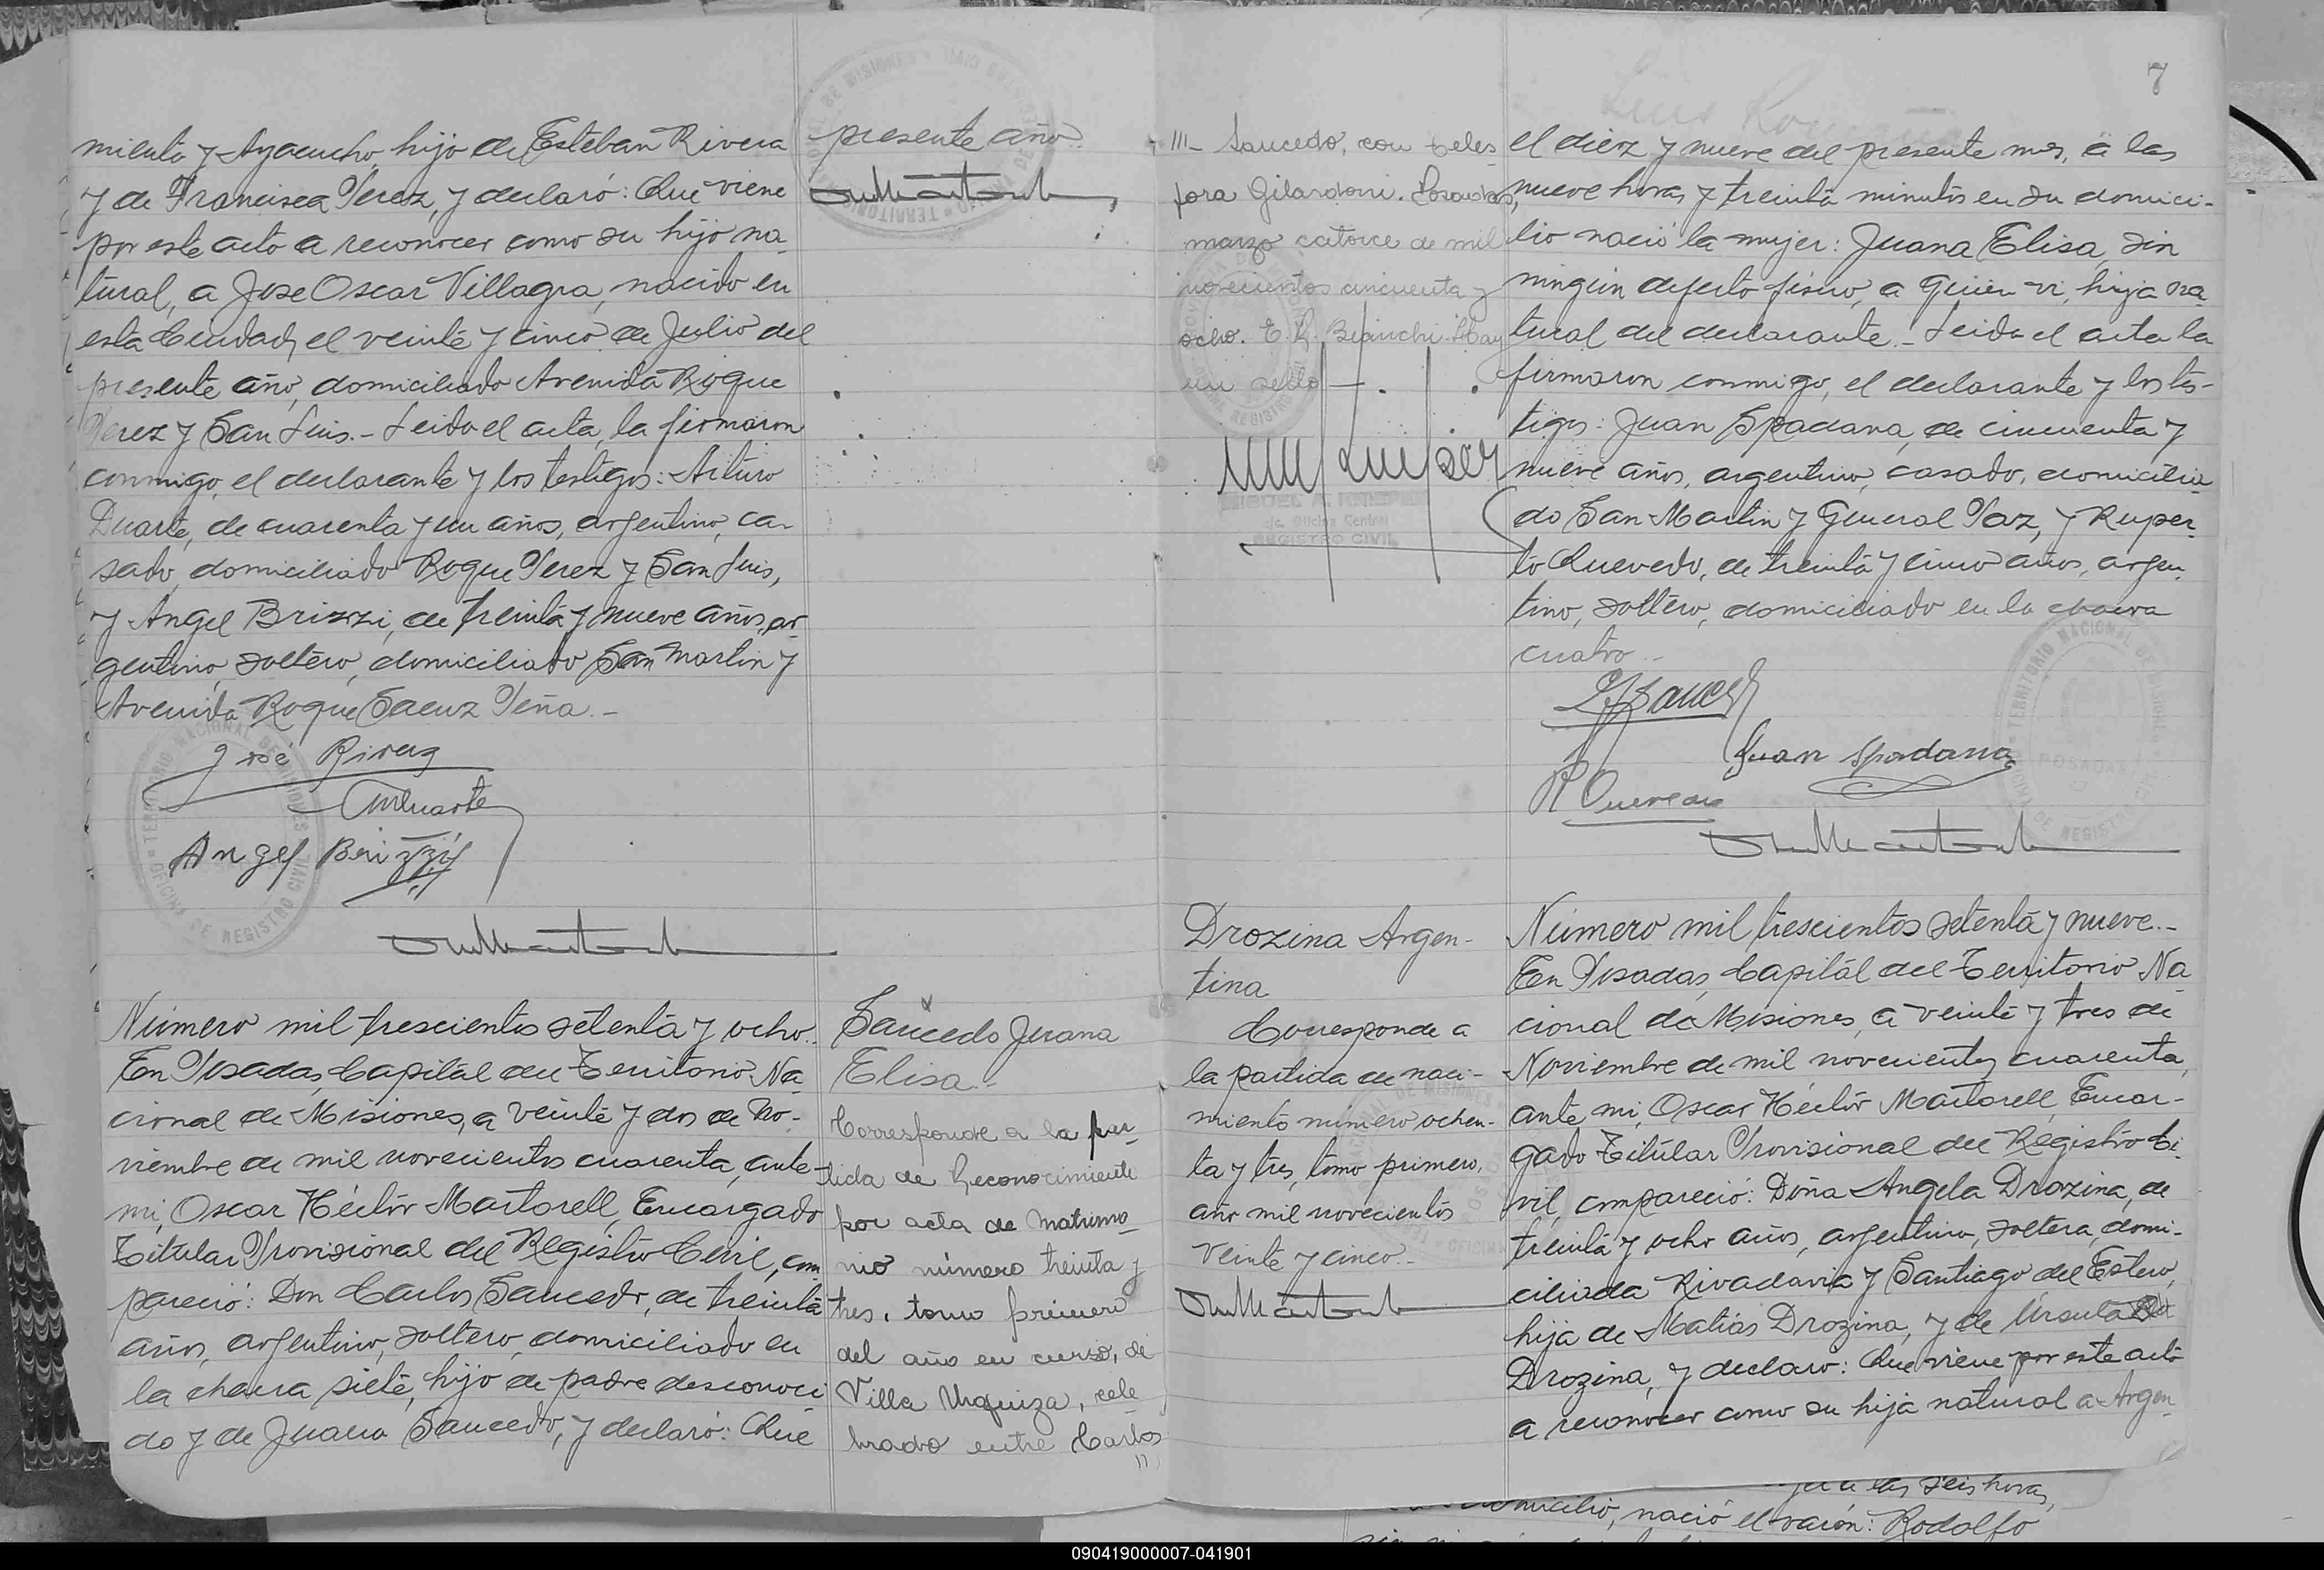 miento y Ayacucho, hijo de Esteban Rivera
y de Francisca Perez, y declaró: Que viene
por este acto a reconocer como su hijo na-
tural, a Jose Oscar Villagra, nacido en
esta Ciudad, el veinte y cinco de Julio del
presente año, domiciliado Avenida Roque
Perez y San Luis.- Leida el acta, la firmaron
conmigo, el declarante y los testigos: Arturo
Duarte, de cuarenta y un años, argentino, ca-
sado, domiciliado Roque Perez y San Luis,
y Angel Brizzi, de treinta y nueve años, ar-
gentino, soltero, domiciliado San Martin y
Avenida Roque Saenz Peña.-
José Rivera
Duarte
Angel Brizzi
TERRITORIO NACIONAL DE MISIONES
OFICINA DE REGISTRO CIVIL
Número mil trescientos setenta y ocho.-
En Posadas, Capital del Territorio Na-
cional de Misiones, a veinte y dos de No-
viembre de mil novecientos cuarenta, ante
mi, Oscar Héctor Martorell, Encargado
Titular Provisional del Registro Civil, com-
pareció: Don Carlos Saucedo, de treinta
años, argentino, soltero, domiciliado en
la chacra siete, hijo de padre desconoci-
do y de Juana Saucedo, y declaró: Que
presente año.
Saucedo Juana
Elisa.-
Corresponde a la par-
tida de Reconocimiento
por acta de Matrimo-
nio número treinta y
tres, tomo primero
del año en curso, de
Villa Urquiza, cele-
brado entre Carlos
III- Saucedo, con Teles-
fora Gilardoni. Posadas,
marzo catorce de mil
novecientos cincuenta y
ocho. E. R. Bianchi. Hay
un sello -.
e/c Oficina Central
REGISTRO CIVIL
Drozina Argen-
tina
Corresponde a
la partida de naci-
miento número ochen-
ta y tres, tomo primero,
año mil novecientos
veinte y cinco.-
7
el diez y nueve del presente mes, a las
nueve horas y treinta minutos en su domici-
lio nació la mujer: Juana Elisa, sin
ningún defecto físico, a quien vi, hija na-
tural del declarante.- Leida el acta la
firmaron conmigo, el declarante y los tes-
tigos: Juan Spadana, de cincuenta y
nueve años, argentino, casado, domicilia-
do San Martin y General Paz, y Ruper-
to Quevedo, de treinta y cinco años, argen-
tino, soltero, domiciliado en la chacra
cuatro.-
Juan Spadana
R Quevedo
Número mil trescientos setenta y nueve.-
En Posadas, Capital del Territorio Na-
cional de Misiones, a veinte y tres de
Noviembre de mil novecientos cuarenta,
ante mi, Oscar Héctor Martorell, Encar-
gado Titular Provisional del Registro Ci-
vil, compareció: Doña Angela Drozina, de
treinta y ocho años, argentina, soltera, domi-
ciliada Rivadavia y Santiago del Estero,
hija de Matias Drozina, y de Ursula
Drozina, y declaro: Que viene por este acto
a reconocer como su hija natural a Argen-
a las seis horas,
domicilio, nació el varón: Rodolfo
090419000007-041901